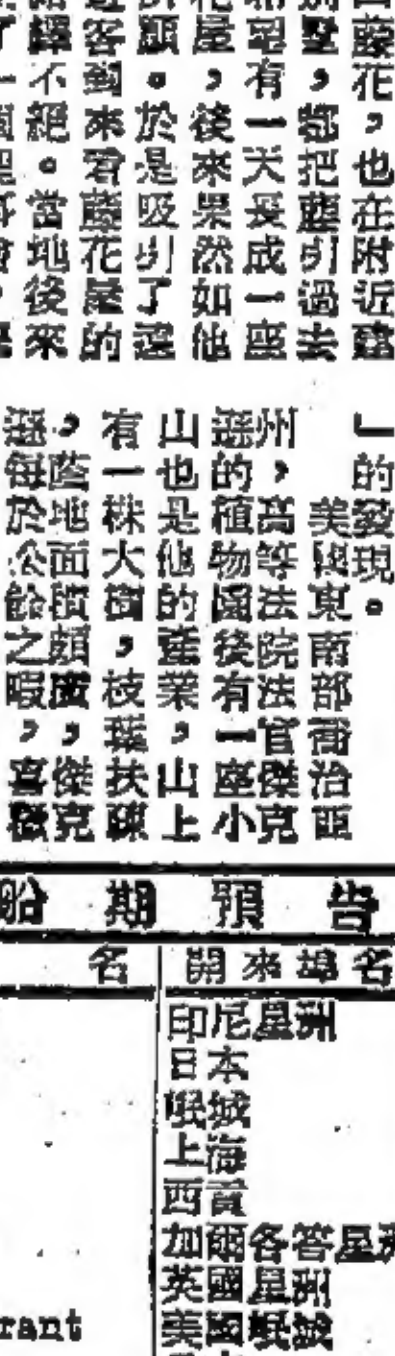 藤花，也在附近建
墅，都把藤引過去
望有一天長成一座
花屋，後來果然如他
所願。於是吸引了遊
遊客到來看藤花屋的
繹不絕。當地後來
」的發現。
美國東南部喬治亞
州，高等法院法官傑克
遜的植物園後有一座小
山也是他的產業，山上
有一株大樹，枝葉扶疎
，蔭地面積頗廣，傑克
遜每於公餘之暇，喜歡
船期預告
名 開來埠名
印尼星洲
日本
岷城
上海
西貢
加爾各答星洲
英國星洲
rant 美國岷城